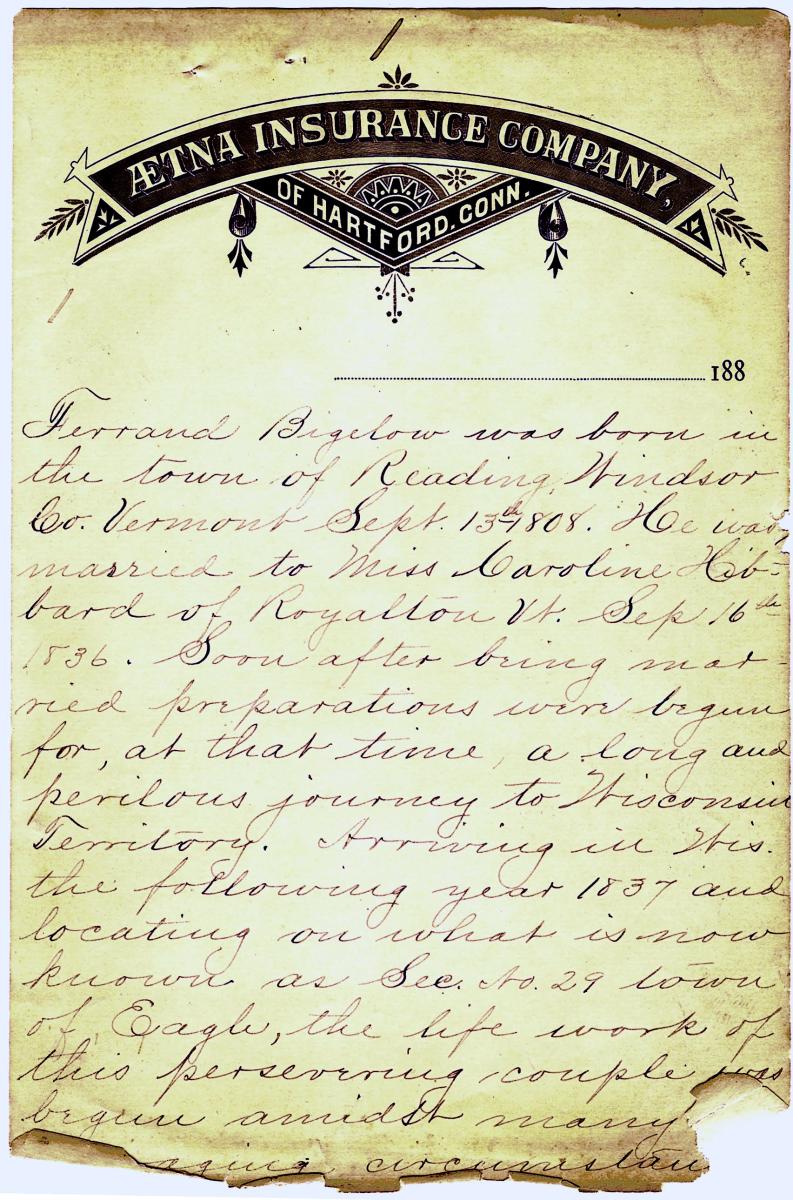 ÆTNA INSURANCE COMPANY,
OF HARTFORD, CONN.
188
Ferrand Bigelow was born in
the town of Reading, Windsor
Co. Vermont Sept. 13th 1808. He was
married to Miss Caroline Hib-
bard of Royalton Vt. Sep 16th
1836. Soon after being mar-
ried preparations were begun
for, at that time, a long and
perilous journey to Wisconsin
Territory. Arriving in Wis.
the following year 1837 and
locating on what is now
known as Sec. No. 29 town
of Eagle, the life work of
this persevering couple was
begun amidst many
aging circumstan